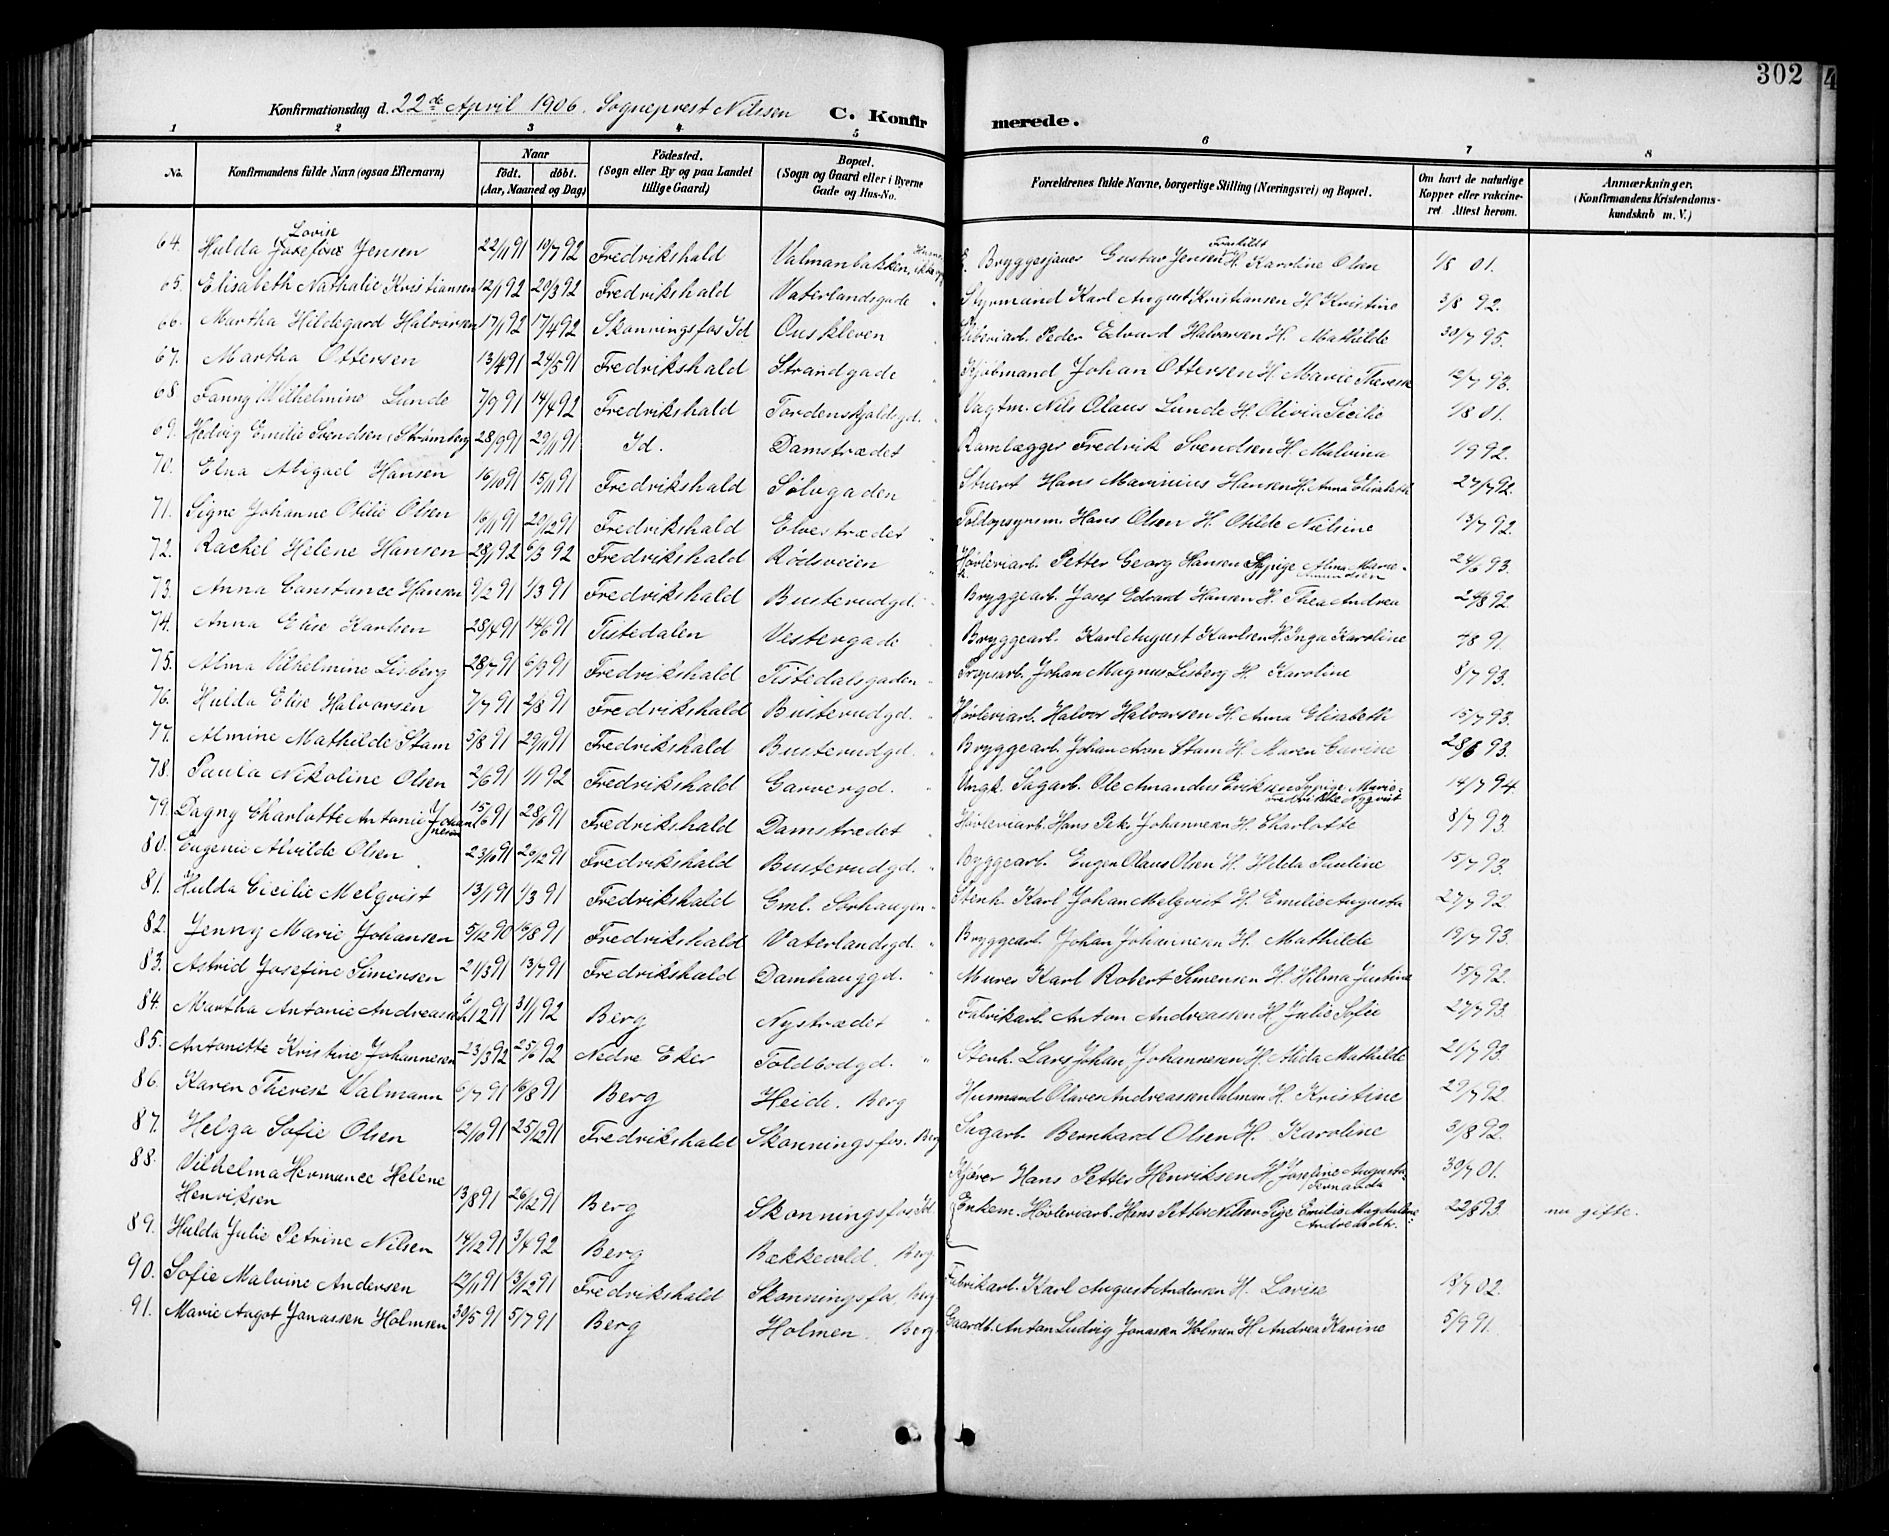 302
Konfirmationsdag d. 22de April 1906. Sogneprest Nilssen C. Konfirmerede.
1 2 3 4 5 6 7 8
No. Konfirmandens fulde Navn (ogsaa Efternavn) Naar født. døbt. (Aar, Maaned og Dag) Fødested. (Sogn eller By og paa Landet tillige Gaard) Bopæl. (Sogn og Gaard eller i Byerne Gade og Hus-No. Forældrenes fulde Navne, borgerlige Stilling (Næringsvei) og Bopæl. Om havt de naturlige Kopper eller vakcineret. Attest herom. Anmærkninger. (Konfirmandens Kristendomskundskab m. V.)
64. Hulda Lovise Josefine Jensen 22/11 91 10/7 92 Fredrikshald Valmanbakken, Bryggesjauer Gustav Jensen Fraskildt H. Karoline Olsen 1/8 01.
65. Elisabeth Nathalie Kristiansen 12/1 92 20/3 92 Fredrikshald Vaterlandsgade Styrmand Karl August Kristiansen H. Kristine 3/8 92.
66. Martha Hildegard Halvorsen 17/1 92 17/4 92 Skonningsfos Id Ouskleven Peder Edvard Halvorsen H. Mathilde 30/7 95.
67. Martha Ottersen 13/4 91 24/5 91 Fredrikshald Strandgade Kjøbmand Johan Ottersen H. Marie Therese 12/7 93.
68. Fanny Wilhelmine Lunde 7/9 91 14/4 92 Fredrikshald Tordenskjoldsgd. Vagtm. Nils Olaus Lunde H. Olivia Secilie 1/8 01.
69. Hedvig Emilie Svendsen (Strömberg 28/9 91 29/11 91 Id. Damstrædet Ramlægger Fredrik Svendsen H. Malvina 1/9 92.
70. Elna Abigael Hansen 16/10 91 15/11 91 Fredrikshald Sølvgaden Stuert Hans Marinius Hansen H. Anna Elisabeth 27/7 92.
71. Signe Johanne Otilie Olsen 16/11 91 20/12 91 Fredrikshald Elvestrædet Toldopsynsm. Hans Olsen H. Otilde Nielsine 13/7 92.
72. Rachel Helene Hansen 28/1 92 6/3 92 Fredrikshald Rødsveien Høvleriarb. Petter Georg Hansen Sypige Alma Marie Amundsen 24/6 93.
73. Anna Constance Hansen 9/2 91 1/3 91 Fredrikshald Busterudgd. Bryggearb. Josef Edvard Hansen H. Thea Andrea 24/8 92.
74. Anna Elise Karlsen 28/4 91 14/6 91 Tistedalen Vestergade Bryggearb. Karl August Karlsen H. Inga Karoline 7/8 91.
75. Alma Vilhelmine Lisberg 28/7 91 6/9 91 Fredrikshald Tistedalsgaden Propsarb. Johan Magnus Lisberg H. Karoline 8/7 93.
76. Hulda Elise Halvorsen 7/7 91 2/8 91 Fredrikshald Busterudgd. Høvleriarb. Halvor Halvorsen H. Anna Elisabeth 15/7 93.
77. Almine Mathilde Stam 5/8 91 29/11 91 Fredrikshald Busterudgd. Bryggearb. Johan Aron Stam H. Maren Gurine 28/6 93.
78. Paula Nikoline Olsen 2/6 91 1/1 92 Fredrikshald Garvergd. Ungk. Sagarb. Ole Amandus Eriksen Sypige Marie Fredrikke Nyqvist 14/7 94.
79. Dagny Charlotte Antonie Johannesen 15/6 91 28/6 91 Fredrikshald Damstrædet Høvleriarb. Hans Petr. Johannesen H. Charlotte 8/7 93.
80. Eugenie Alvilde Olsen 23/10 91 26/12 91 Fredrikshald Busterudgd. Byggearb. Eugen Olaus Olsen H. Hilda Pauline 15/7 93.
81. Hulda Cicilie Melqvist 13/1 91 1/3 91 Fredrikshald Gml. Sørhaugen Stenh. Karl Johan Melqvist H. Emilie Augusta 27/7 92
82. Jenny Marie Johansen 5/12 90 16/8 91 Fredrikshald Vaterlandsgd. Bryggearb. Johan Johannesen H. Mathilde 19/7 93.
83. Astrid Josefine Simensen 21/3 91 13/7 91 Fredrikshald Damhauggd. Murer Karl Robert Simensen H. Hilma Justine 15/7 92.
84. Martha Antonie Andreassen 6/12 91 31/1 92 Berg Nystrædet Fabrikarb. Anton Andreassen H. Julie Sofie 27/7 93.
85. Antonette Kristine Johannesen 23/3 92 25/6 92 Nedre Eker Toldbodgd. Stenh. Lars Johan Johannesen H. Alida Mathilde 21/7 93.
86. Karen Therese Valmann 6/7 91 16/8 91 Berg Heide. Berg Husmand Olaves Andreassen Valman H. Kristine 29/6 92
87. Helga Sofie Olsen 12/10 91 25/12 91 Fredrikshald Skonningsfos. Berg Sagarb. Bernhard Olsen H. Karoline 3/8 92.
88. Vildelma Hermance Helene Henriksen 13/8 91 26/12 91 Berg Skonningsfos Id Kjører Hans Petter Henriksen H. Josefine Augusta Fernanda 30/7 01.
89. Hulda Julie Petrine Nilsen 14/12 91 3/4 92 Berg Bækkevold. Berg. Enkem. Høvleriarb. Hans Petter Nilsen Pige Emilie Magdalene Andreasdtr. 22/8 93. nu gifte.
90. Sofie Malvine Andersen 12/11 91 13/12 91 Fredrikshald Skonningsfos, Berg Fabrikarb. Karl August Andersen H. Lovise 18/7 02.
91. Marie Angot Jonassen Holmsen 30/5 91 5/7 91 Berg Holmen. Berg. Gaardb. Anton Ludvig Jonassen Holmen H. Andrea Karine 5/9 91.